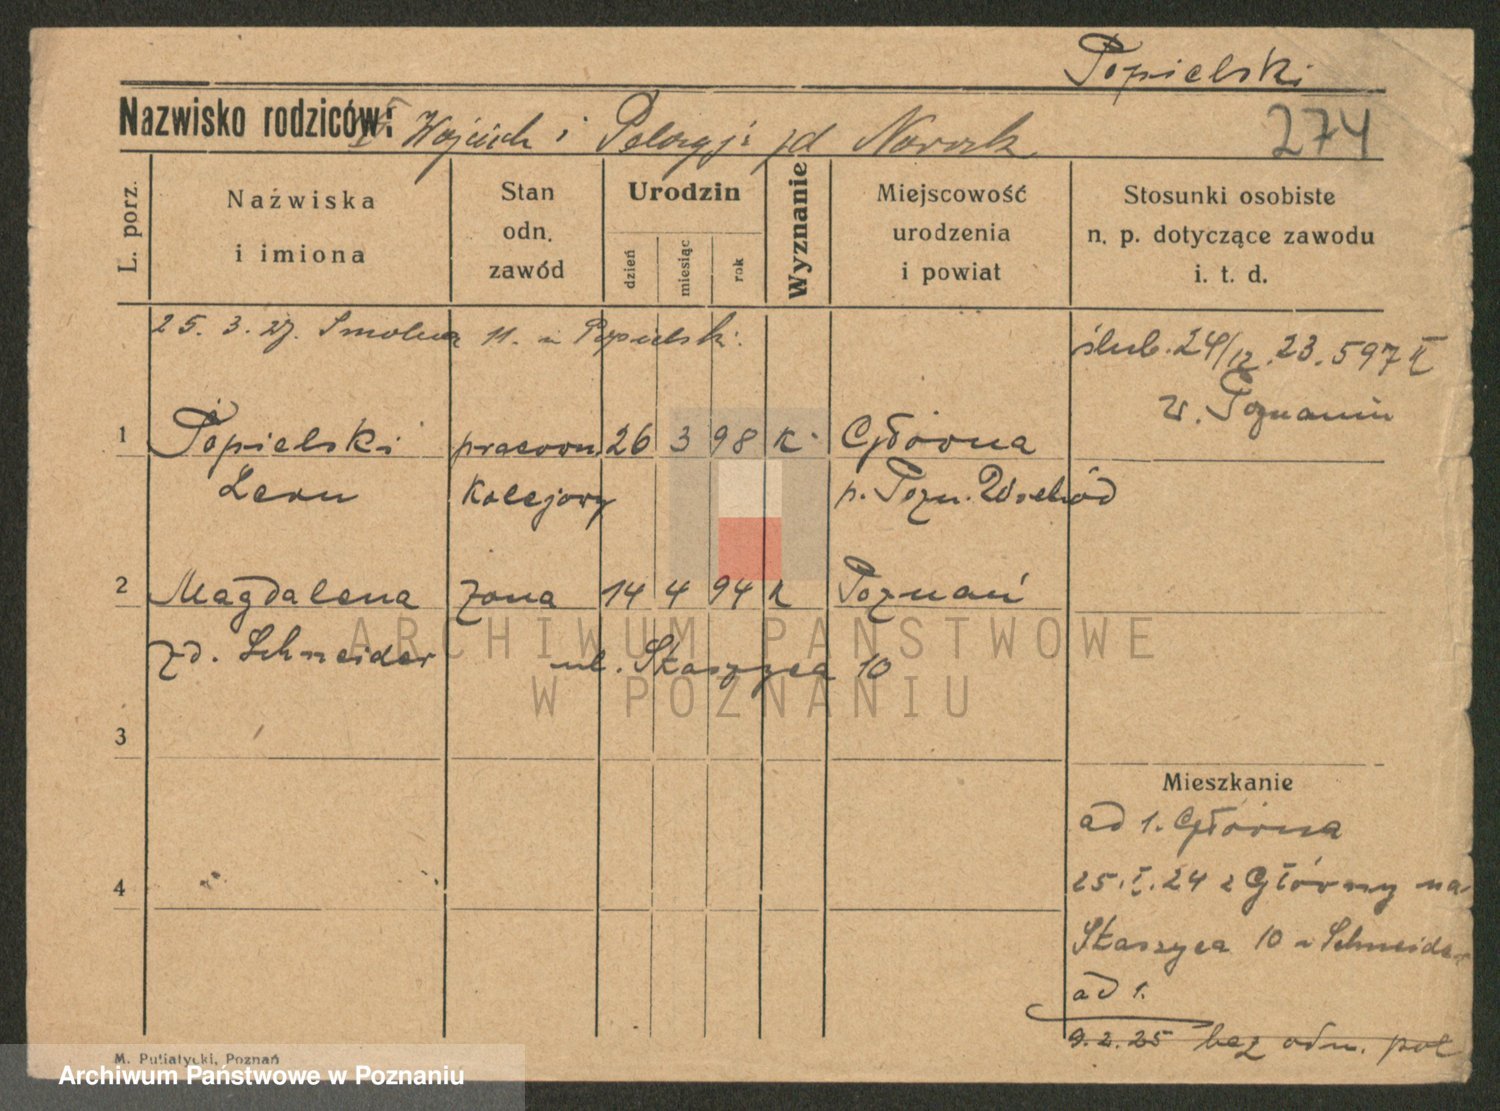 Popielski
Nazwisko rodziców: Wojciech i Pelagji zd Nowak
274
L. porz.
Naźwiska
i imiona
Stan
odn.
zawód
Urodzin
dzień
miesiąc
rok
Wyznanie
Miejscowość
urodzenia
i powiat
Stosunki osobiste
n. p. dotyczące zawodu
i. t. d.
25. 3. 27. Smolna 11. u Popielski.
ślub. 24/12. 23. 597 II
w. Poznaniu
1 Popielski pracown 26 3 98 K. Główna
Leon kolejowy p. Pozn. Wschód
2 Magdalena żona 14 4 94 K Poznań
zd. Schneider ul. Staszyca 10
3
4
Mieszkanie
ad 1. Główna
25. I. 24 z Główny na
Staszyca 10 u Schneider
ad 1.
9. 2. 25 bez odm. pol
ARCHIWUM PAŃSTWOWE
W POZNANIU
M. Putiatycki, Poznań
Archiwum Państwowe w Poznaniu